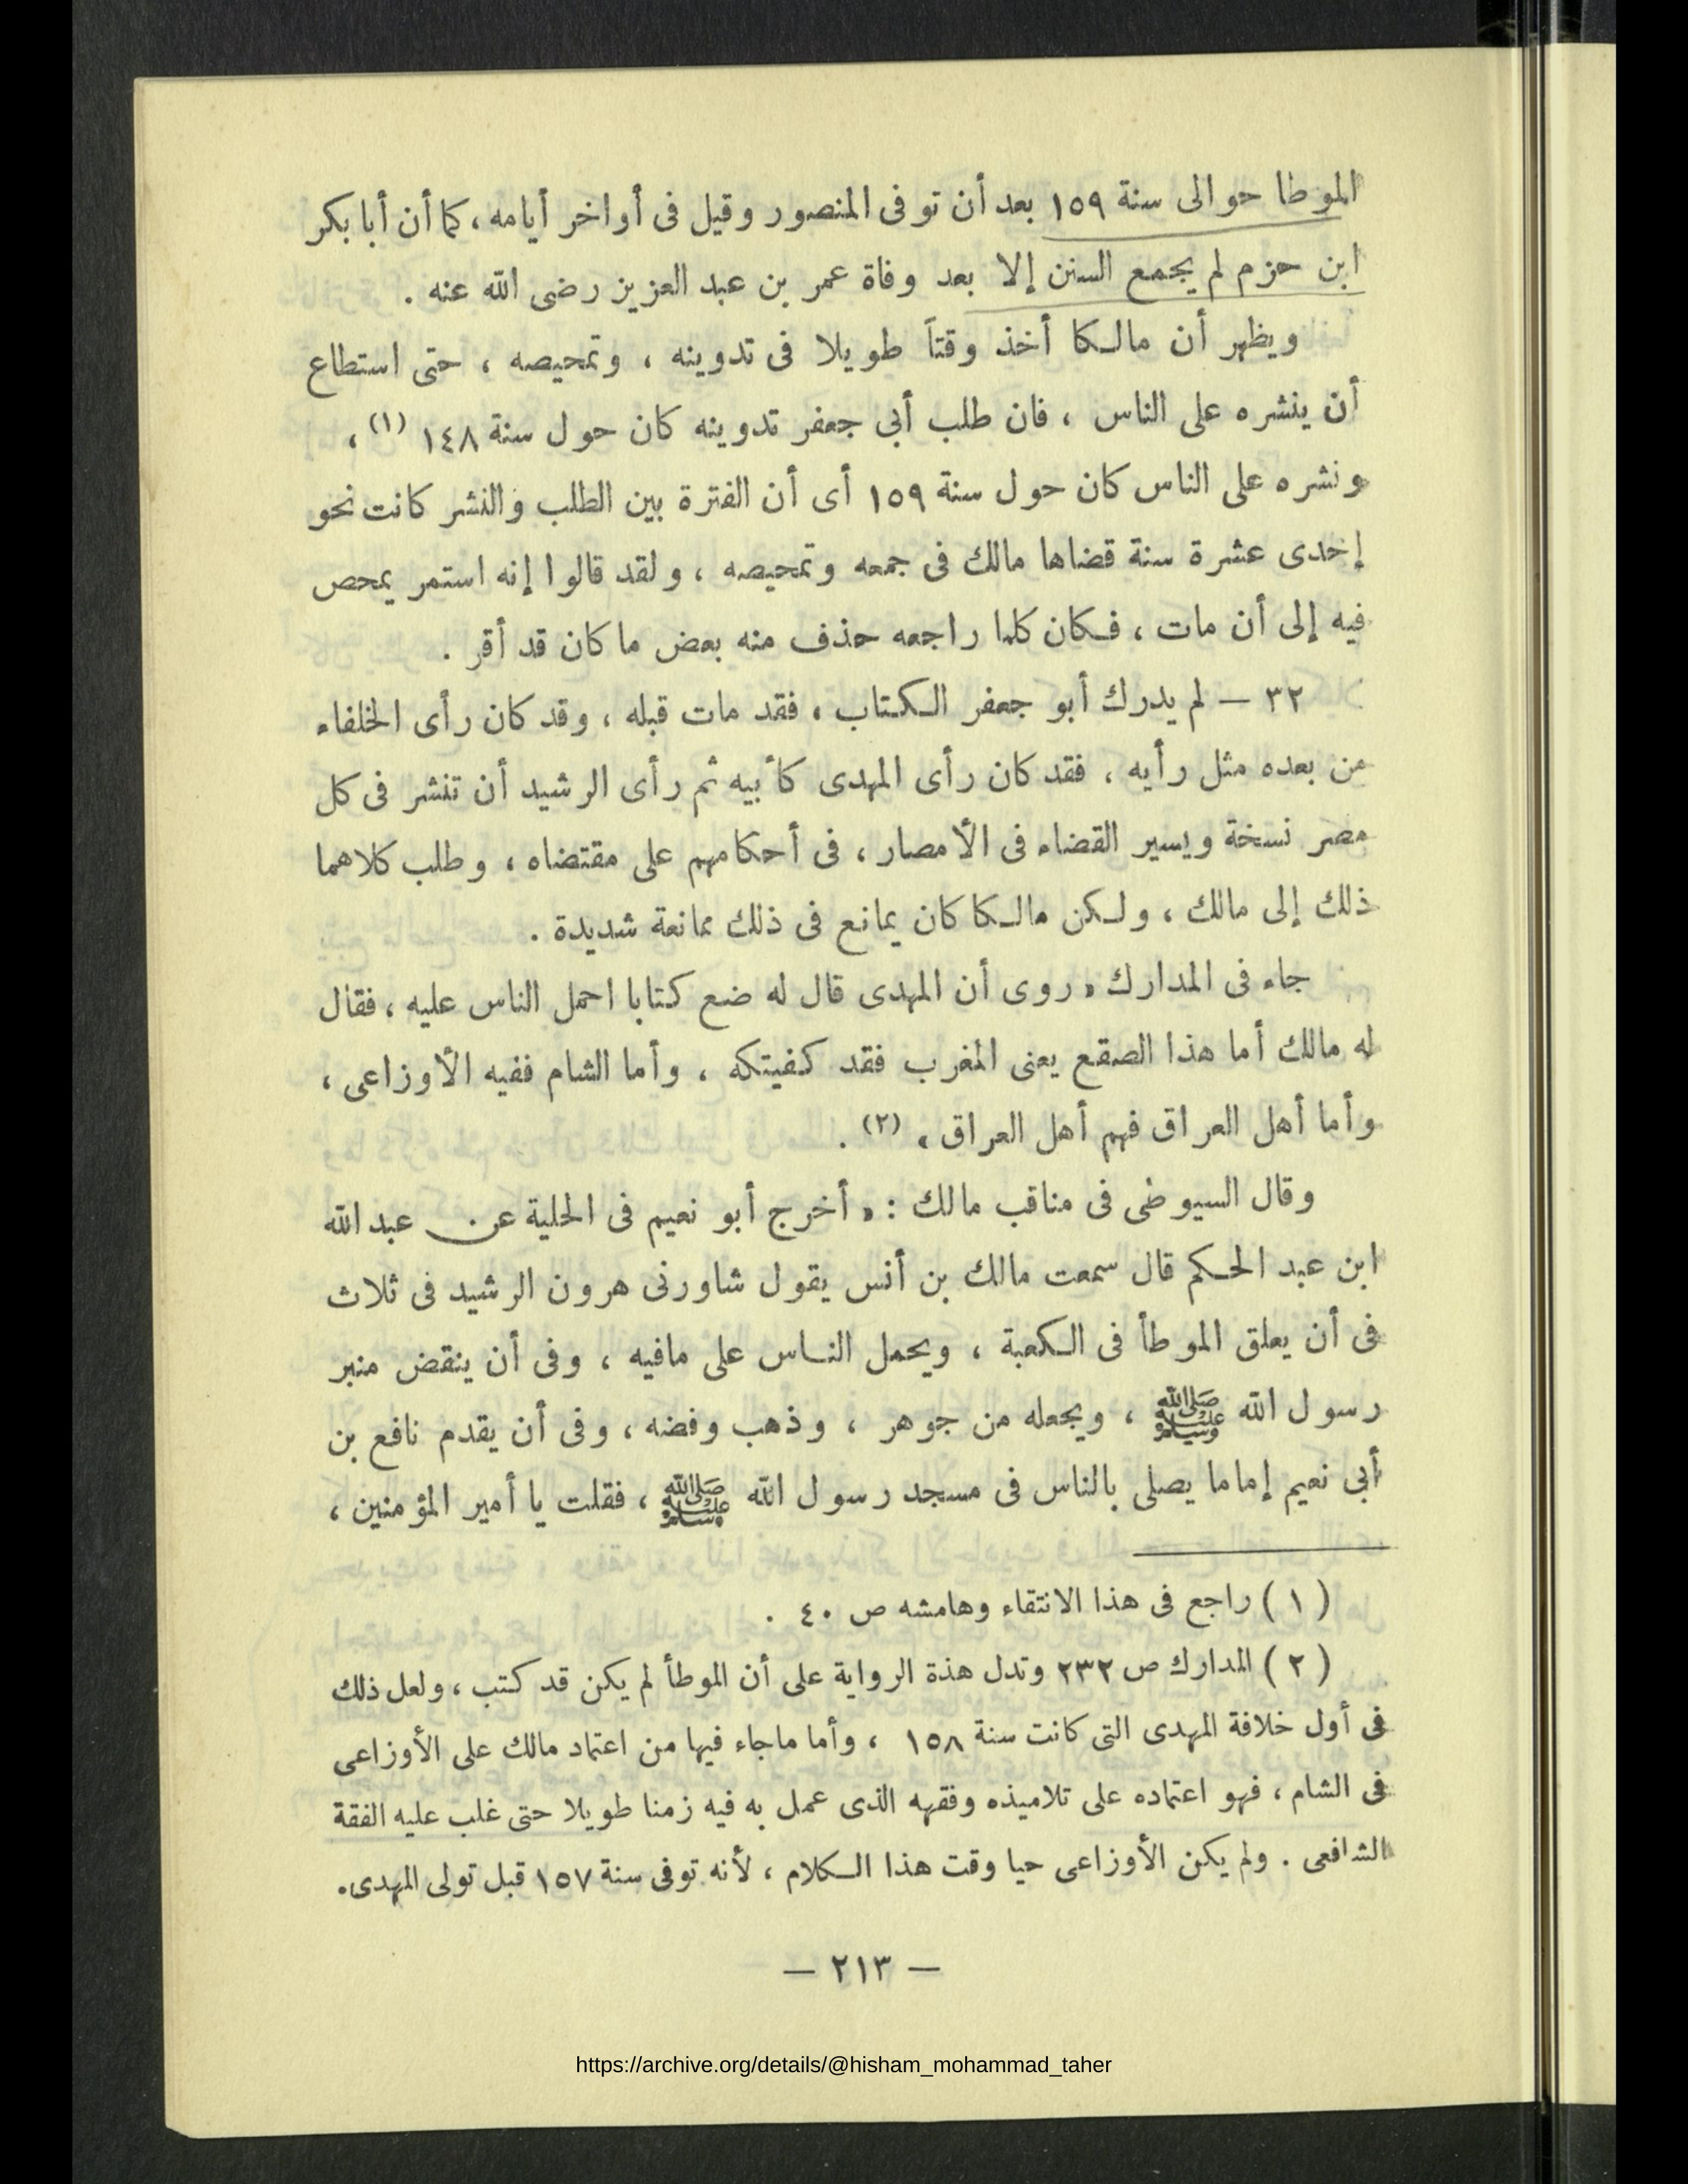 الموطا حوالى سنة ١٥٩ بعد أن توفى المنصور وقيل فى أواخر أيامه ، كما أن أبا بكر
ابن حزم لم يجمع السنن إلا بعد وفاة عمر بن عبد العزيز رضى الله عنه .
ويظهر أن مالكا أخذ وقتاً طويلا فى تدوينه ، وتمحيصه ، حتى استطاع
أن ينشره على الناس ، فان طلب أبى جعفر تدوينه كان حول سنة ١٤٨ (١) ،
ونشره على الناس كان حول سنة ١٥٩ أى أن الفترة بين الطلب والنشر كانت نحو
إحدى عشرة سنة قضاها مالك فى جمعه وتمحيصه ، ولقد قالوا إنه استمر يمحص
فيه إلى أن مات ، فكان كلما راجعه حذف منه بعض ما كان قد أقر .
٣٢ — لم يدرك أبو جعفر الكتاب ، فقد مات قبله ، وقد كان رأى الخلفاء
من بعده مثل رأيه ، فقد كان رأى المهدى كأبيه ثم رأى الرشيد أن تنشر فى كل
مصر نسخة ويسير القضاء فى الأمصار ، فى أحكامهم على مقتضاه ، وطلب كلاهما
ذلك إلى مالك ، ولكن مالكا كان يمانع فى ذلك ممانعة شديدة .
جاء فى المدارك « روى أن المهدى قال له ضع كتابا احمل الناس عليه ، فقال
له مالك أما هذا الصقع يعنى المغرب فقد كفيتكه ، وأما الشام ففيه الأوزاعى ،
وأما أهل العراق فهم أهل العراق » (٢) .
وقال السيوطى فى مناقب مالك : « أخرج أبو نعيم فى الحلية عن عبد الله
ابن عبد الحكم قال سمعت مالك بن أنس يقول شاورنى هرون الرشيد فى ثلاث
فى أن يعلق الموطأ فى الكعبة ، ويحمل الناس على مافيه ، وفى أن ينقض منبر
رسول الله ﷺ ، ويجعله من جوهر ، وذهب وفضه ، وفى أن يقدم نافع بن
أبى نعيم إماما يصلى بالناس فى مسجد رسول الله ﷺ ، فقلت يا أمير المؤمنين ،
( ١ ) راجع فى هذا الانتقاء وهامشه ص ٤٠ .
( ٢ ) المدارك ص ٢٣٢ وتدل هذة الرواية على أن الموطأ لم يكن قد كتب ، ولعل ذلك
فى أول خلافة المهدى التى كانت سنة ١٥٨ ، وأما ماجاء فيها من اعتماد مالك على الأوزاعى
فى الشام ، فهو اعتماده على تلاميذه وفقهه الذى عمل به فيه زمنا طويلا حتى غلب عليه الفقة
الشافعى . ولم يكن الأوزاعى حيا وقت هذا الكلام ، لأنه توفى سنة ١٥٧ قبل تولى المهدى.
— ٢١٣ —
https://archive.org/details/@hisham_mohammad_taher